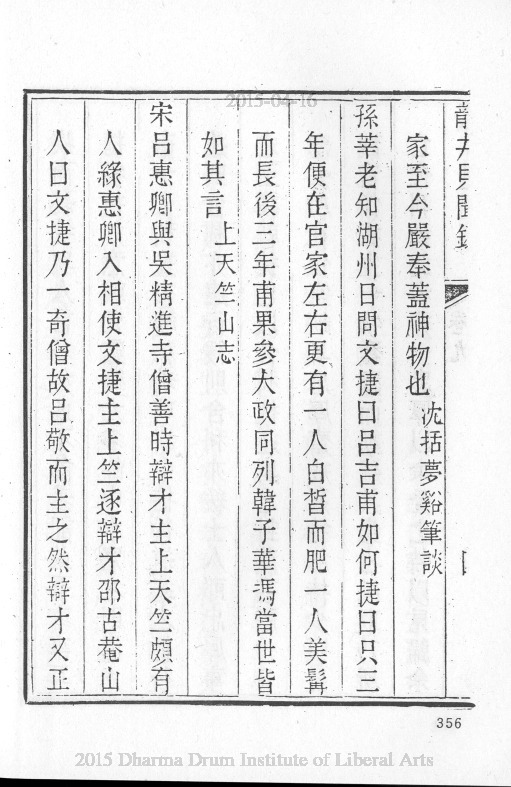 2015-04-16
龍井見聞錄
卷九
四
家至今嚴奉蓋神物也 沈括夢谿筆談
孫莘老知湖州日問文捷曰呂吉甫如何捷曰只三
年便在官家左右更有一人白皙而肥一人美髯
而長後三年甫果參大政同列韓子華馮當世皆
如其言 上天竺山志
宋呂惠卿與吳精進寺僧善時辯才主上天竺頗有
人緣惠卿入相使文捷主上竺逐辯才邵古菴山
人曰文捷乃一奇僧故呂敬而主之然辯才又正
356
2015 Dharma Drum Institute of Liberal Arts